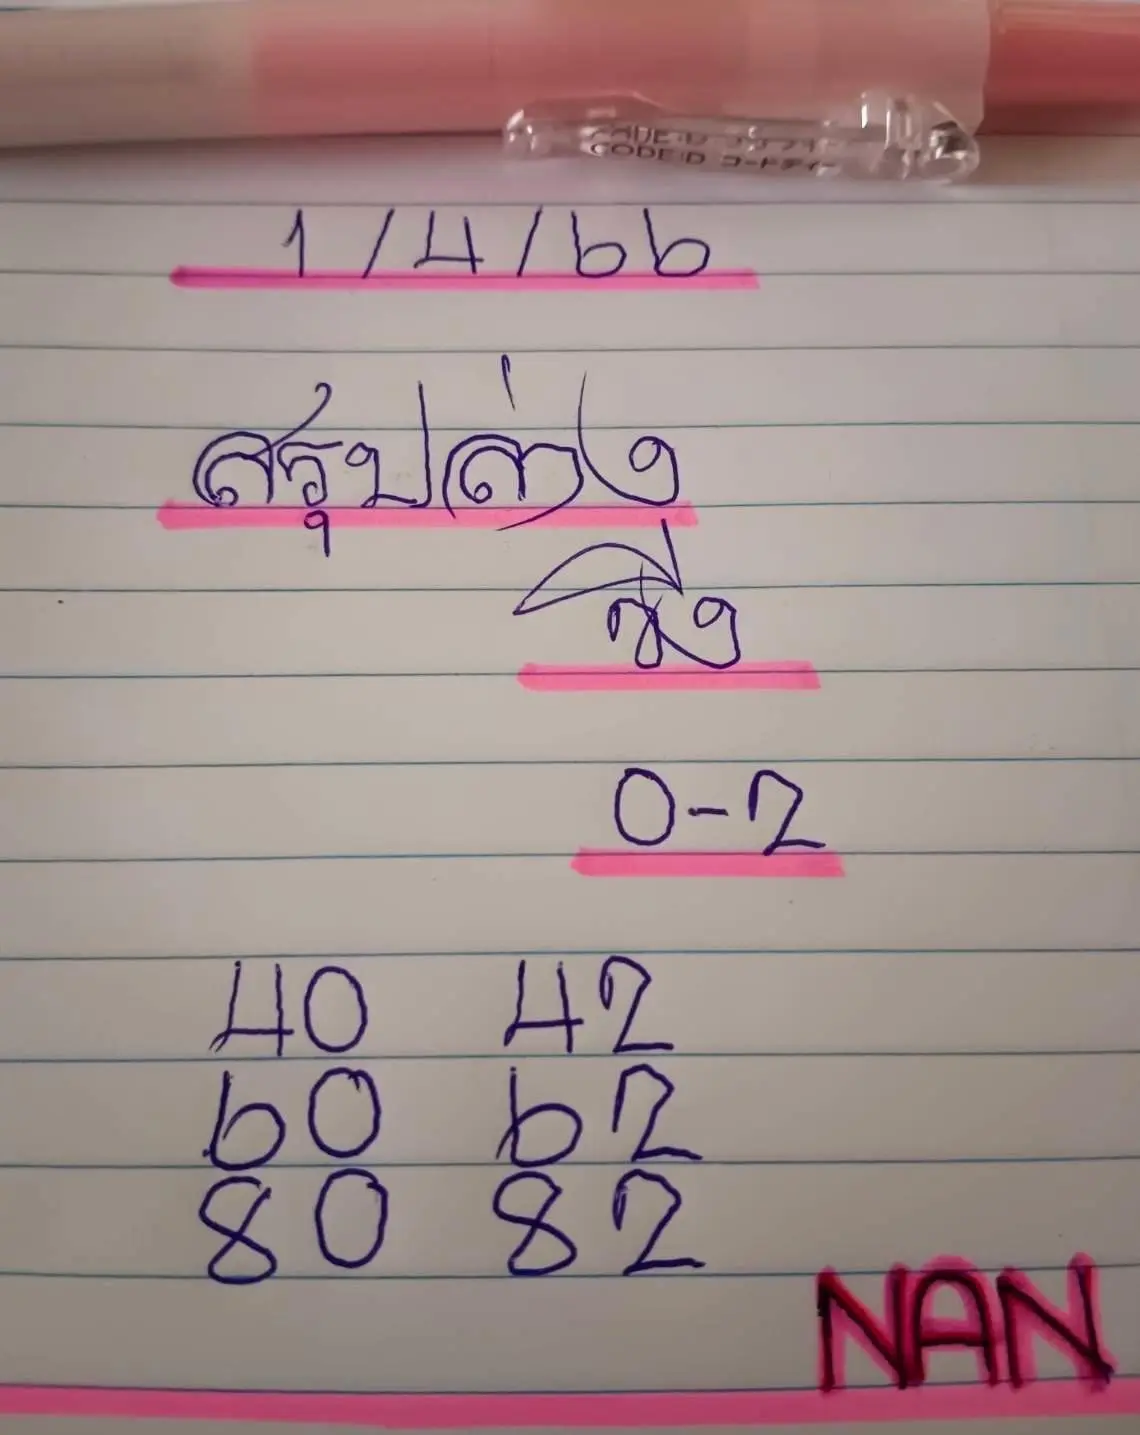 CODE:D コードディー
1/4/66
สรุปล่าง
ชึ่ง
0-2
40 42
60 62
80 82
NAN